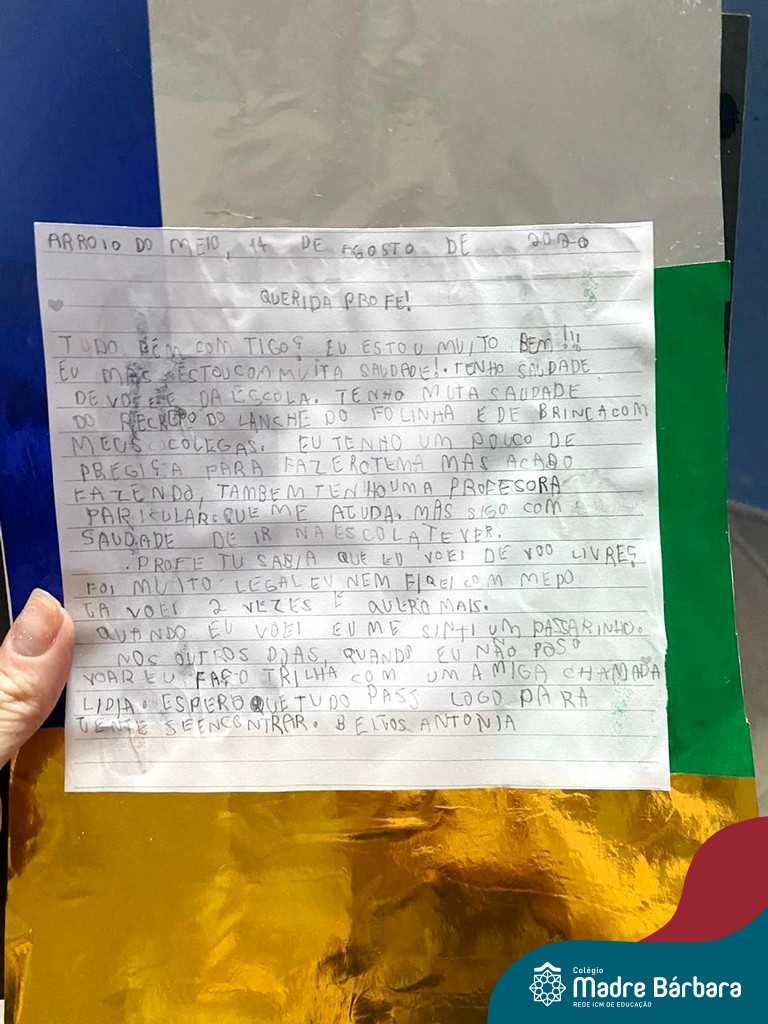 ARROIO DO MEIO, 14 DE AGOSTO DE 2020
QUERIDA PROFE!
TUDO BEM COM TIGO? EU ESTOU MUITO BEM!!!
EU MAS ESTOU COM MUITA SAUDADE!. TENHO SAUDADE
DE VOCE E DA ESCOLA. TENHO MUTA SAUDADE
DO RECREIO DO LANCHE DO FOLINHA E DE BRINCA COM
MEUS COLEGAS. EU TENHO UM POUCO DE
PREGISA PARA FAZER O TEMA MAS ACABO
FAZENDO, TAMBEM TENHO UMA PROFESORA
PARICULAR QUE ME AJUDA. MAS SIGO COM
SAUDADE DE IR NA ESCOLA TE VER.
. PROFE TU SABIA QUE EU VOEI DE VOO LIVRE?
FOI MUITO LEGAL EU NEM FIQEI COM MEDO
JA VOEI 2 VEZES E QUERO MAIS.
QUANDO EU VOEI EU ME SINTI UM PASSARINHO.
NOS OUTROS DIAS, QUANDO EU NÃO POSO
VOAR EU FAÇO TRILHA COM UMA MIGA CHAMADA
LIDIA. ESPERO QUE TUDO PASS LOGO PARA
JENTE SE ENCONTRAR. BEIJOS ANTONIA
Colégio
Madre Bárbara
REDE ICM DE EDUCAÇÃO